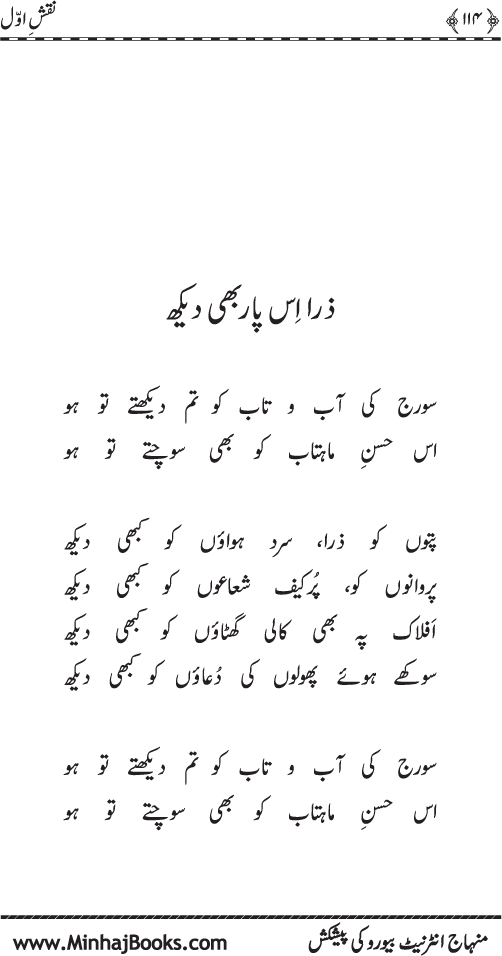 نقشِ اوّل
﴿۱۱۴﴾
ذرا اِس پار بھی دیکھ
سورج کی آب و تاب کو تم دیکھتے تو ہو
اس حسنِ ماہتاب کو بھی سوچتے تو ہو
پتوں کو ذرا، سرد ہواؤں کو کبھی دیکھ
پروانوں کو، پُرکیف شعاعوں کو کبھی دیکھ
اَفلاک پہ بھی کالی گھٹاؤں کو کبھی دیکھ
سوکھے ہوئے پھولوں کی دُعاؤں کو کبھی دیکھ
سورج کی آب و تاب کو تم دیکھتے تو ہو
اس حسنِ ماہتاب کو بھی سوچتے تو ہو
منہاج انٹرنیٹ بیورو کی پیشکش
www.MinhajBooks.com